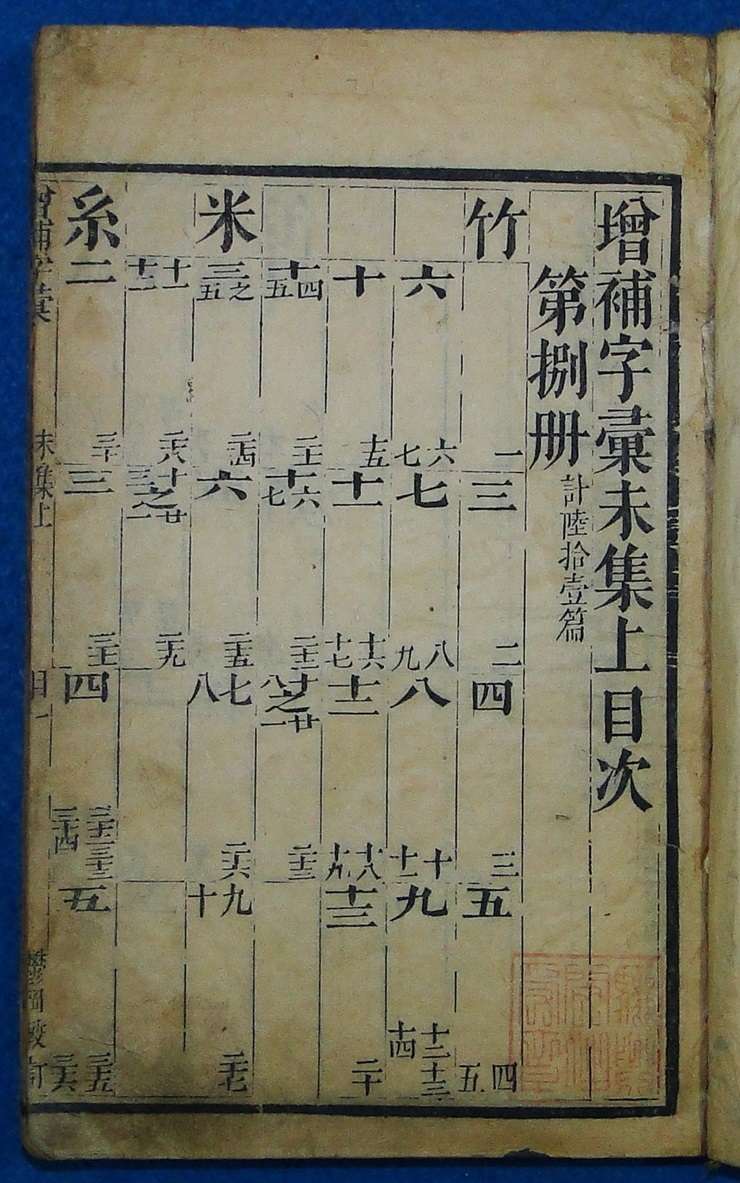 增補字彙未集上目次
第捌册 計陸拾壹篇
竹 一 三 二 四 三 五 四 五
六 六 七 七 八 九 八 十 十一 九 十二 十三 十四
十 十五 十一 十六 十七 十二 十八 十九 十三 二十
十四 十五 二十一 十六 十七 二十二 十八之廿一 二十三
米 三之五 二十四 六 二十五 七 八 二十六 九 十 二十七
十一 十二 二十八 十三之廿一 二十九
糸 二 三十 三 三十一 四 三十二 三十三 三十四 五 三十五 三十六
增補字彙 未集上 目一 訂